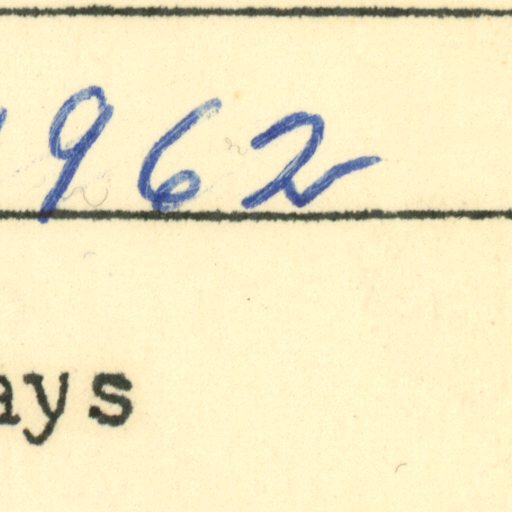 1962
ays